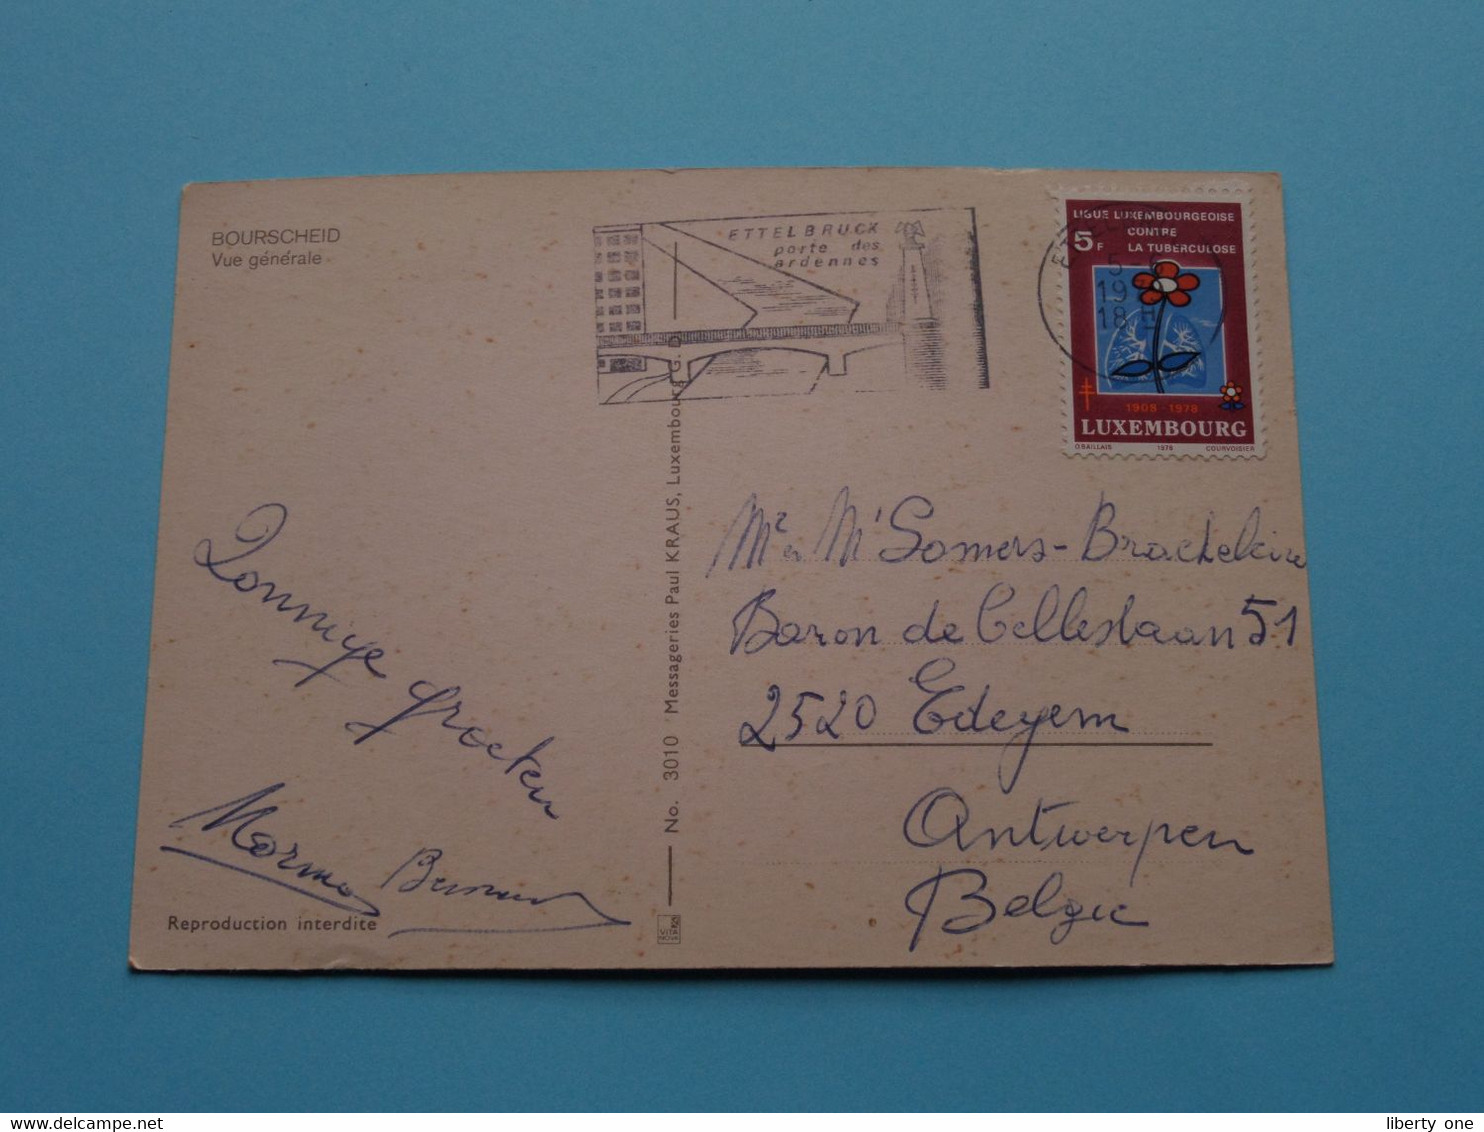 BOURSCHEID
Vue générale
ETTELBRUCK
porte des
ardennes
5-6
19
18H
LIGUE LUXEMBOURGEOISE
CONTRE
5F LA TUBERCULOSE
1908-1978
LUXEMBOURG
OBAILLAIS 1978 COURVOISIER
Zonnige groeten
Bernard
Reproduction interdite
No. 3010 Messageries Paul KRAUS, Luxembourg G.D.
VITA
NOVA
Mr en M' Somers-Brackeleire
Baron de Celleslaan 51
2520 Edegem
Antwerpen
Belgie
liberty one